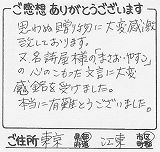 ご感想 ありがとうございます
思わぬ贈り物に大変感激
致しております。
又、名詩屋様の"まごころやすらぎ"
の心のこもった文言に大変
感銘を受けました。
本当に有難とうございました。
ご住所 東京 都道府県 江東 市区町村